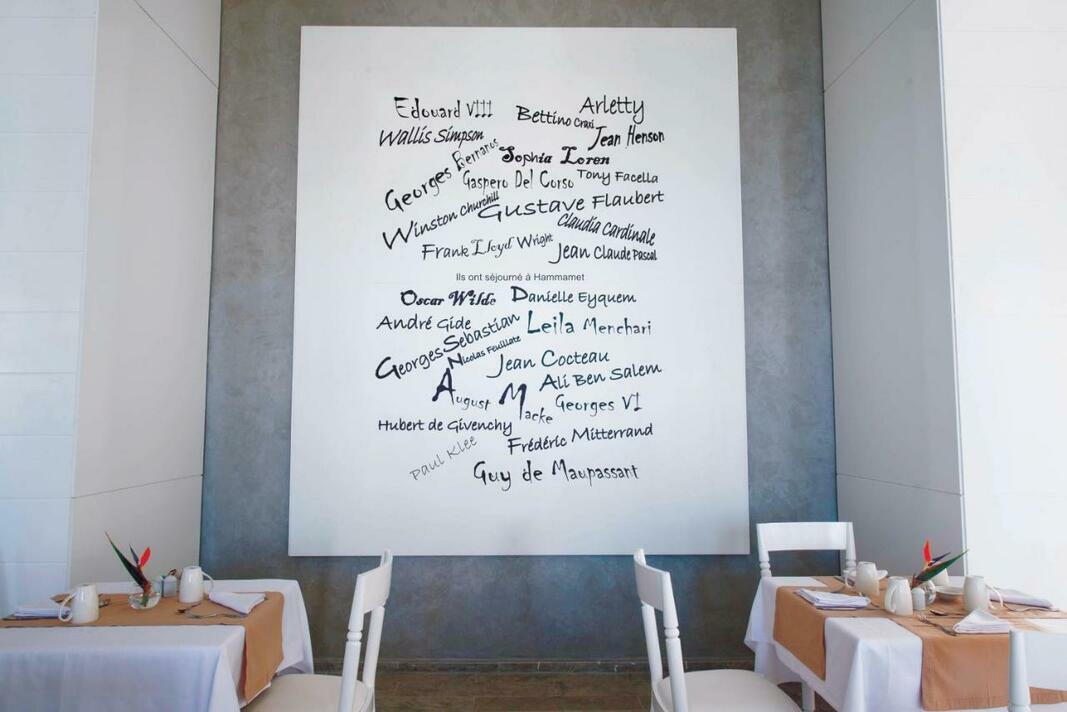 Edouard VIII
Bettino Craxi
Arletty
Wallis Simpson
Jean Henson
Georges Bernanos
Sophia Loren
Gaspero Del Corso
Tony Facella
Winston Churchill
Gustave Flaubert
Claudia Cardinale
Frank Lloyd Wright
Jean Claude Pascal
Ils ont séjourné à Hammamet
Oscar Wilde
Danielle Eyquem
André Gide
Georges Sebastian
Leila Menchari
Nicolas Feuillate
Jean Cocteau
August Macke
Ali Ben Salem
Georges VI
Hubert de Givenchy
Frédéric Mitterrand
Paul Klee
Guy de Maupassant